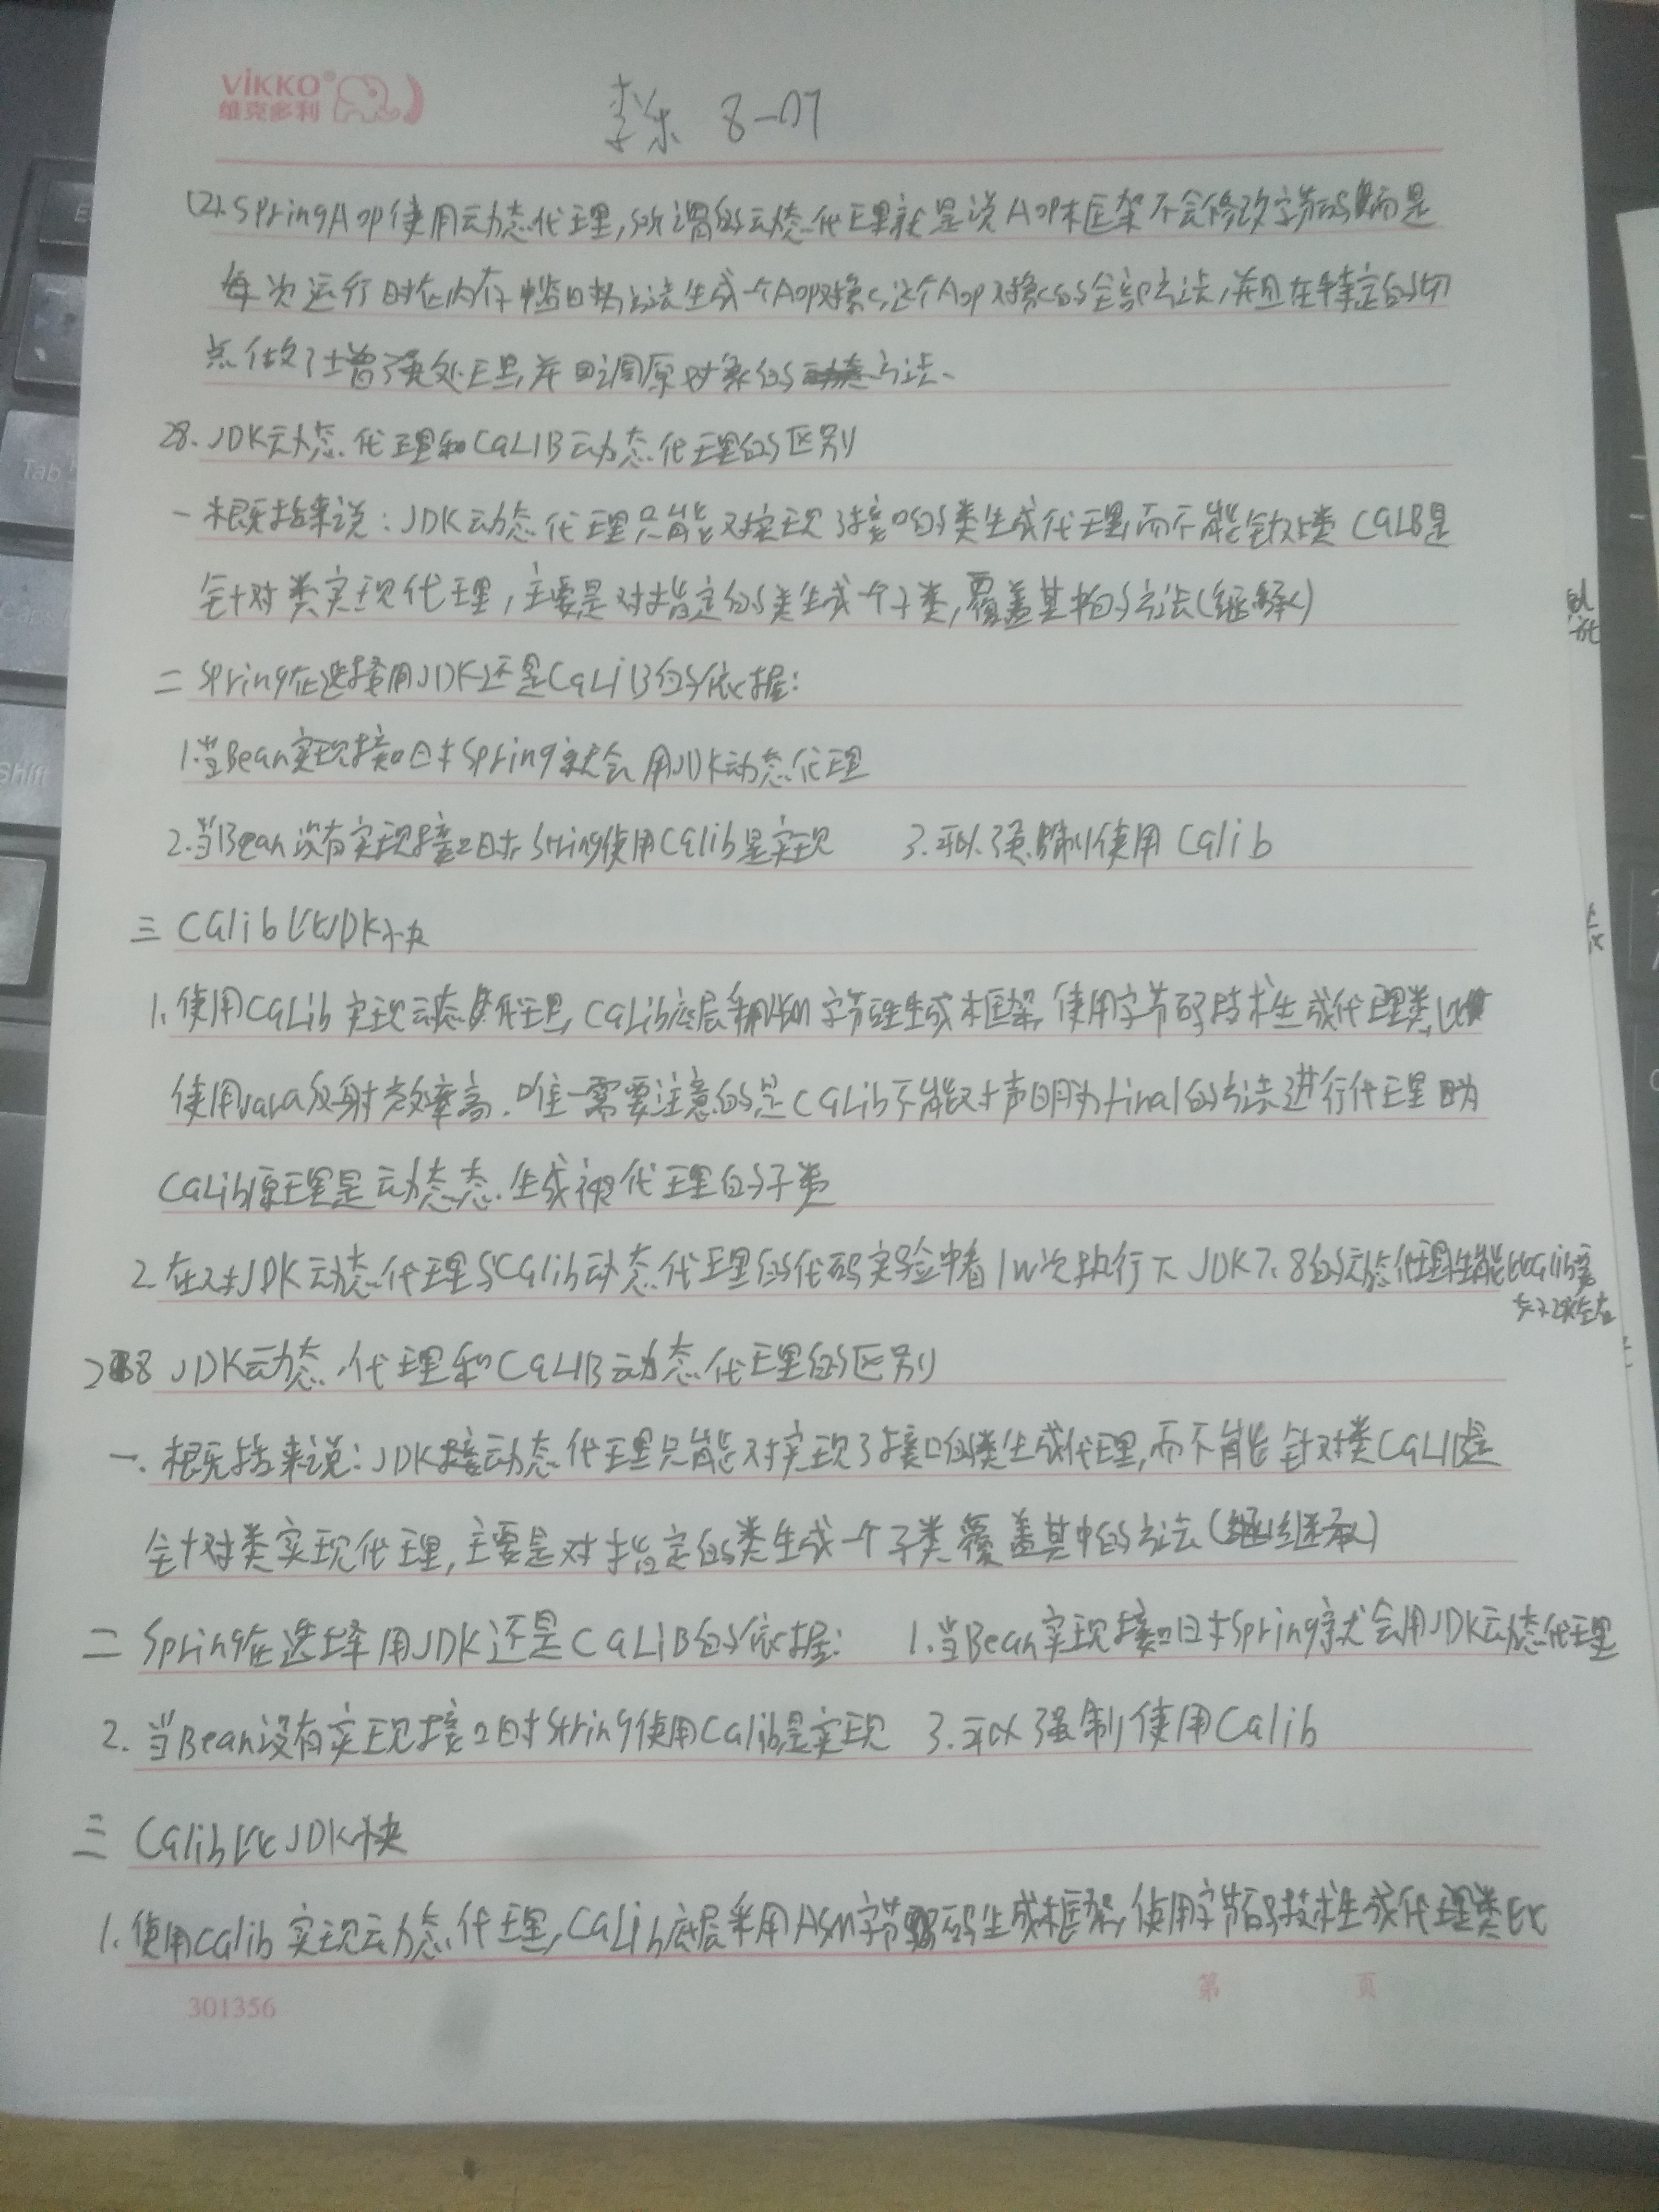 VIKKO®
维克多利
李乐 8-07
(2). SpringAop使用动态代理,所谓的动态代理就是说Aop框架不会修改字节码而是
每次运行时在内存中 生成一个Aop对象,这个Aop对象的全部方法,并且在特定的切
点做了增强处理,并回调原对象的方法、
28. JDK动态代理和CGLIB动态代理的区别
一 概括来说:JDK动态代理只能对实现了接口的类生成代理,而不能针对类 CGLIB是
针对类实现代理,主要是对指定的类生成一个子类,覆盖其中的方法(继承)
二 Spring在选择用JDK还是CGLiB的依据:
1.当Bean实现接口时Spring就会用JDK动态代理
2.当Bean没有实现接口时String使用CGlib是实现 3.可以强制使用CGlib
三 CGlib比JDK快
1.使用CGLib实现动态代理,CGLib底层采用ASM字节码生成框架,使用字节码技术生成代理类,比
使用Java反射效率高.唯一需要注意的是CGLib不能对声明为final的方法进行代理 因为
CGLib原理是动态态生成被代理的子类
2.在对JDK动态代理与CGlib动态代理的代码实验中看1W次执行下JDK7、8的动态代理性能比CGlib要
28 JDK动态代理和CGLIB动态代理的区别
一. 概括来说:JDK接动态代理只能对实现了接口的类生成代理,而不能针对类CGLIB是
针对类实现代理,主要是对指定的类生成一个子类覆盖其中的方法(继承)
二 Spring在选择用JDK还是CGLiB的依据: 1.当Bean实现接口时Spring就会用JDK动态代理
2.当Bean没有实现接口时String使用CGlib是实现 3.可以强制使用CGlib
三 CGlib比JDK快
1.使用CGlib实现动态代理,CGLib底层采用ASM字节码生成框架,使用字节码技术生成代理类,比
301356
第 页